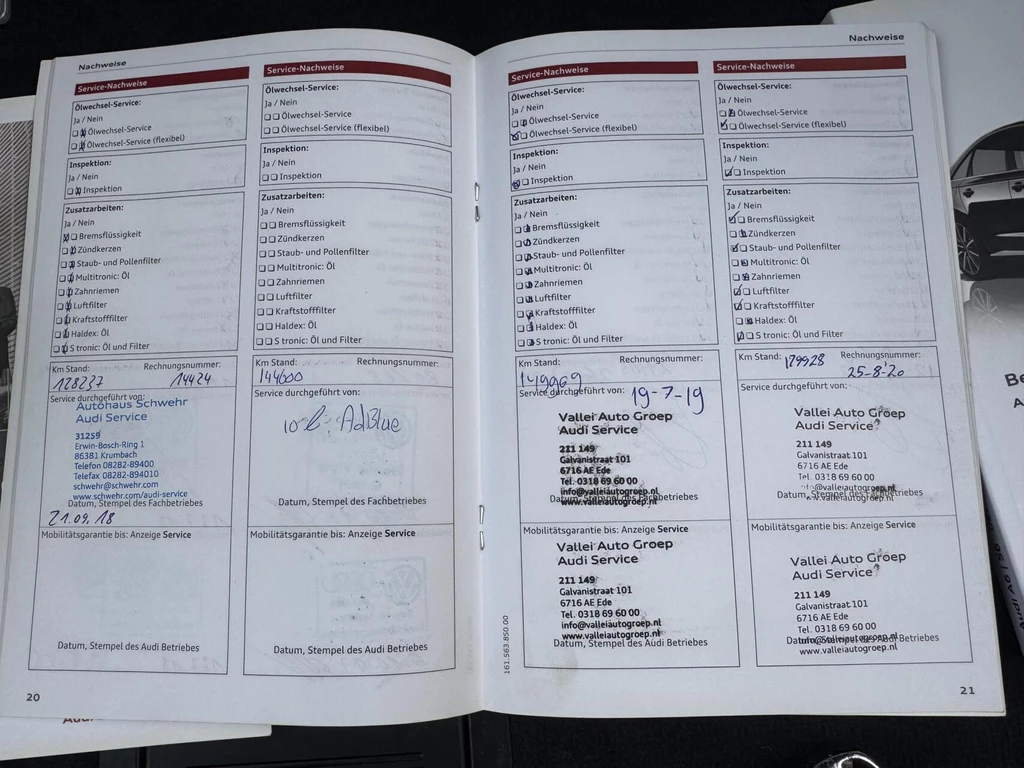 Nachweise
Service-Nachweise
Ölwechsel-Service:
Ja / Nein
Ölwechsel-Service
Ölwechsel-Service (flexibel)
Inspektion:
Ja / Nein
Inspektion
Zusatzarbeiten:
Ja / Nein
Bremsflüssigkeit
Zündkerzen
Staub- und Pollenfilter
Multitronic: Öl
Zahnriemen
Luftfilter
Kraftstofffilter
Haldex: Öl
S tronic: Öl und Filter
Km Stand: Rechnungsnummer:
128237 14424
Service durchgeführt von:
Autohaus Schwehr
Audi Service
31259
Erwin-Bosch-Ring 1
86381 Krumbach
Telefon 08282-89400
Telefax 08282-894010
schwehr@schwehr.com
www.schwehr.com/audi-service
Datum, Stempel des Fachbetriebes
21.09.18
Mobilitätsgarantie bis: Anzeige Service
Datum, Stempel des Audi Betriebes
20
Service-Nachweise
Ölwechsel-Service:
Ja / Nein
Ölwechsel-Service
Ölwechsel-Service (flexibel)
Inspektion:
Ja / Nein
Inspektion
Zusatzarbeiten:
Ja / Nein
Bremsflüssigkeit
Zündkerzen
Staub- und Pollenfilter
Multitronic: Öl
Zahnriemen
Luftfilter
Kraftstofffilter
Haldex: Öl
S tronic: Öl und Filter
Km Stand: Rechnungsnummer:
144600
Service durchgeführt von:
AdBlue
Datum, Stempel des Fachbetriebes
Mobilitätsgarantie bis: Anzeige Service
Datum, Stempel des Audi Betriebes
Nachweise
Service-Nachweise
Ölwechsel-Service:
Ja / Nein
Ölwechsel-Service
Ölwechsel-Service (flexibel)
Inspektion:
Ja / Nein
Inspektion
Zusatzarbeiten:
Ja / Nein
Bremsflüssigkeit
Zündkerzen
Staub- und Pollenfilter
Multitronic: Öl
Zahnriemen
Luftfilter
Kraftstofffilter
Haldex: Öl
S tronic: Öl und Filter
Km Stand: Rechnungsnummer:
149969
Service durchgeführt von: 19-7-19
Vallei Auto Groep
Audi Service
211 149
Galvanistraat 101
6716 AE Ede
Tel. 0318 69 60 00
info@valleiautogroep.nl
Datum, Stempel des Fachbetriebes
www.valleiautogroep.nl
Mobilitätsgarantie bis: Anzeige Service
Vallei Auto Groep
Audi Service
211 149
Galvanistraat 101
6716 AE Ede
Tel. 0318 69 60 00
info@valleiautogroep.nl
www.valleiautogroep.nl
Datum, Stempel des Audi Betriebes
161.563.850.00
Service-Nachweise
Ölwechsel-Service:
Ja / Nein
Ölwechsel-Service
Ölwechsel-Service (flexibel)
Inspektion:
Ja / Nein
Inspektion
Zusatzarbeiten:
Ja / Nein
Bremsflüssigkeit
Zündkerzen
Staub- und Pollenfilter
Multitronic: Öl
Zahnriemen
Luftfilter
Kraftstofffilter
Haldex: Öl
S tronic: Öl und Filter
Km Stand: 179928 Rechnungsnummer:
25-8-'20
Service durchgeführt von:
Vallei Auto Groep
Audi Service
211 149
Galvanistraat 101
6716 AE Ede
Tel. 0318 69 60 00
info@valleiautogroep.nl
Datum, Stempel des Fachbetriebes
www.valleiautogroep.nl
Mobilitätsgarantie bis: Anzeige Service
Vallei Auto Groep
Audi Service
211 149
Galvanistraat 101
6716 AE Ede
Tel. 0318 69 60 00
info@valleiautogroep.nl
Datum, Stempel des Audi Betriebes
www.valleiautogroep.nl
21